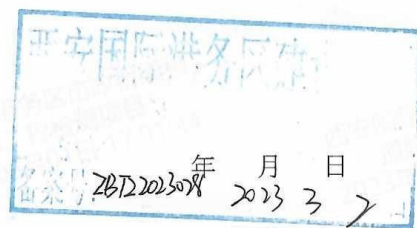 西安国际港务区建
年 月 日
备案号:ZBTZ2023028 2023 3 2